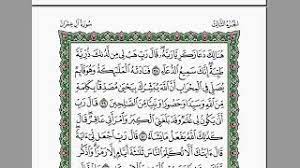 سُورَةُ آلِ عِمْرَانَ
الجُزْءُ الثَّالِثُ
هُنَالِكَ دَعَا زَكَرِيَّا رَبَّهُۥ قَالَ رَبِّ هَبْ لِى مِن لَّدُنكَ ذُرِّيَّةً
طَيِّبَةً إِنَّكَ سَمِيعُ ٱلدُّعَآءِ ٣٨ فَنَادَتْهُ ٱلْمَلَٰٓئِكَةُ وَهُوَ قَآئِمٌ
يُصَلِّى فِى ٱلْمِحْرَابِ أَنَّ ٱللَّهَ يُبَشِّرُكَ بِيَحْيَىٰ مُصَدِّقًۢا بِكَلِمَةٍ
مِّنَ ٱللَّهِ وَسَيِّدًا وَحَصُورًا وَنَبِيًّا مِّنَ ٱلصَّٰلِحِينَ ٣٩ قَالَ رَبِّ
أَنَّىٰ يَكُونُ لِى غُلَٰمٌ وَقَدْ بَلَغَنِىَ ٱلْكِبَرُ وَٱمْرَأَتِى عَاقِرٌ
قَالَ كَذَٰلِكَ ٱللَّهُ يَفْعَلُ مَا يَشَآءُ ٤٠ قَالَ رَبِّ ٱجْعَل لِّىٓ